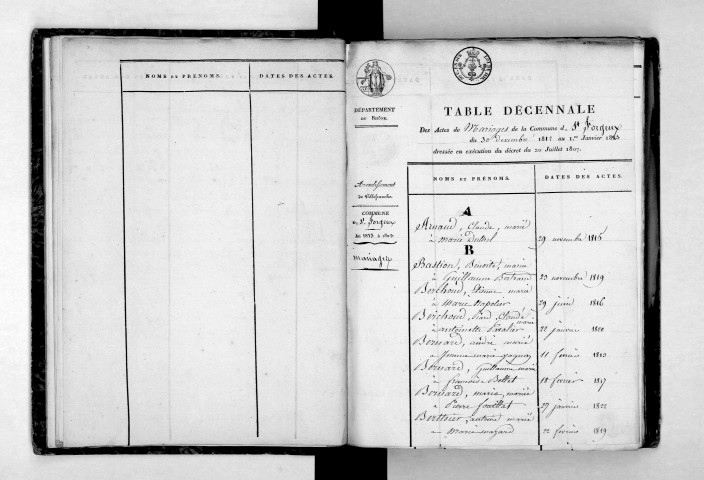 NOMS ET PRÉNOMS. DATES DES ACTES.
DÉPARTEMENT
DU RHÔNE.
Arrondissement
de Villefranche
COMMUNE
de St. Forgeux
An 1813 à 1823
Mariages
TABLE DÉCENNALE
Des Actes de Mariages de la Commune d. St forgeux
du 30 décembre 1812 au 1er Janvier 1823
dressée en exécution du décret du 20 Juillet 1807.
NOMS ET PRÉNOMS. DATES DES ACTES.
A
Arnaud, Claude, marié
à marie 29 novembre 1815
B
Bastion, Benoite, mariée
à Guillaume Bertrand 23 novembre 1819
Berchoud, Etienne marié
à Marie 29 juin 1816
Berchoud, Claude marié
à antoinette 22 janvier 1820
Bernard, andré marié
à Jeanne marie 11 février 1813
Bernard, Guillaume marié
à francoise Bellet 18 février 1817
Bernard, marie, mariée
à Pierre 27 janvier 1822
Berthier, antoine marié
à Marie 22 février 1819